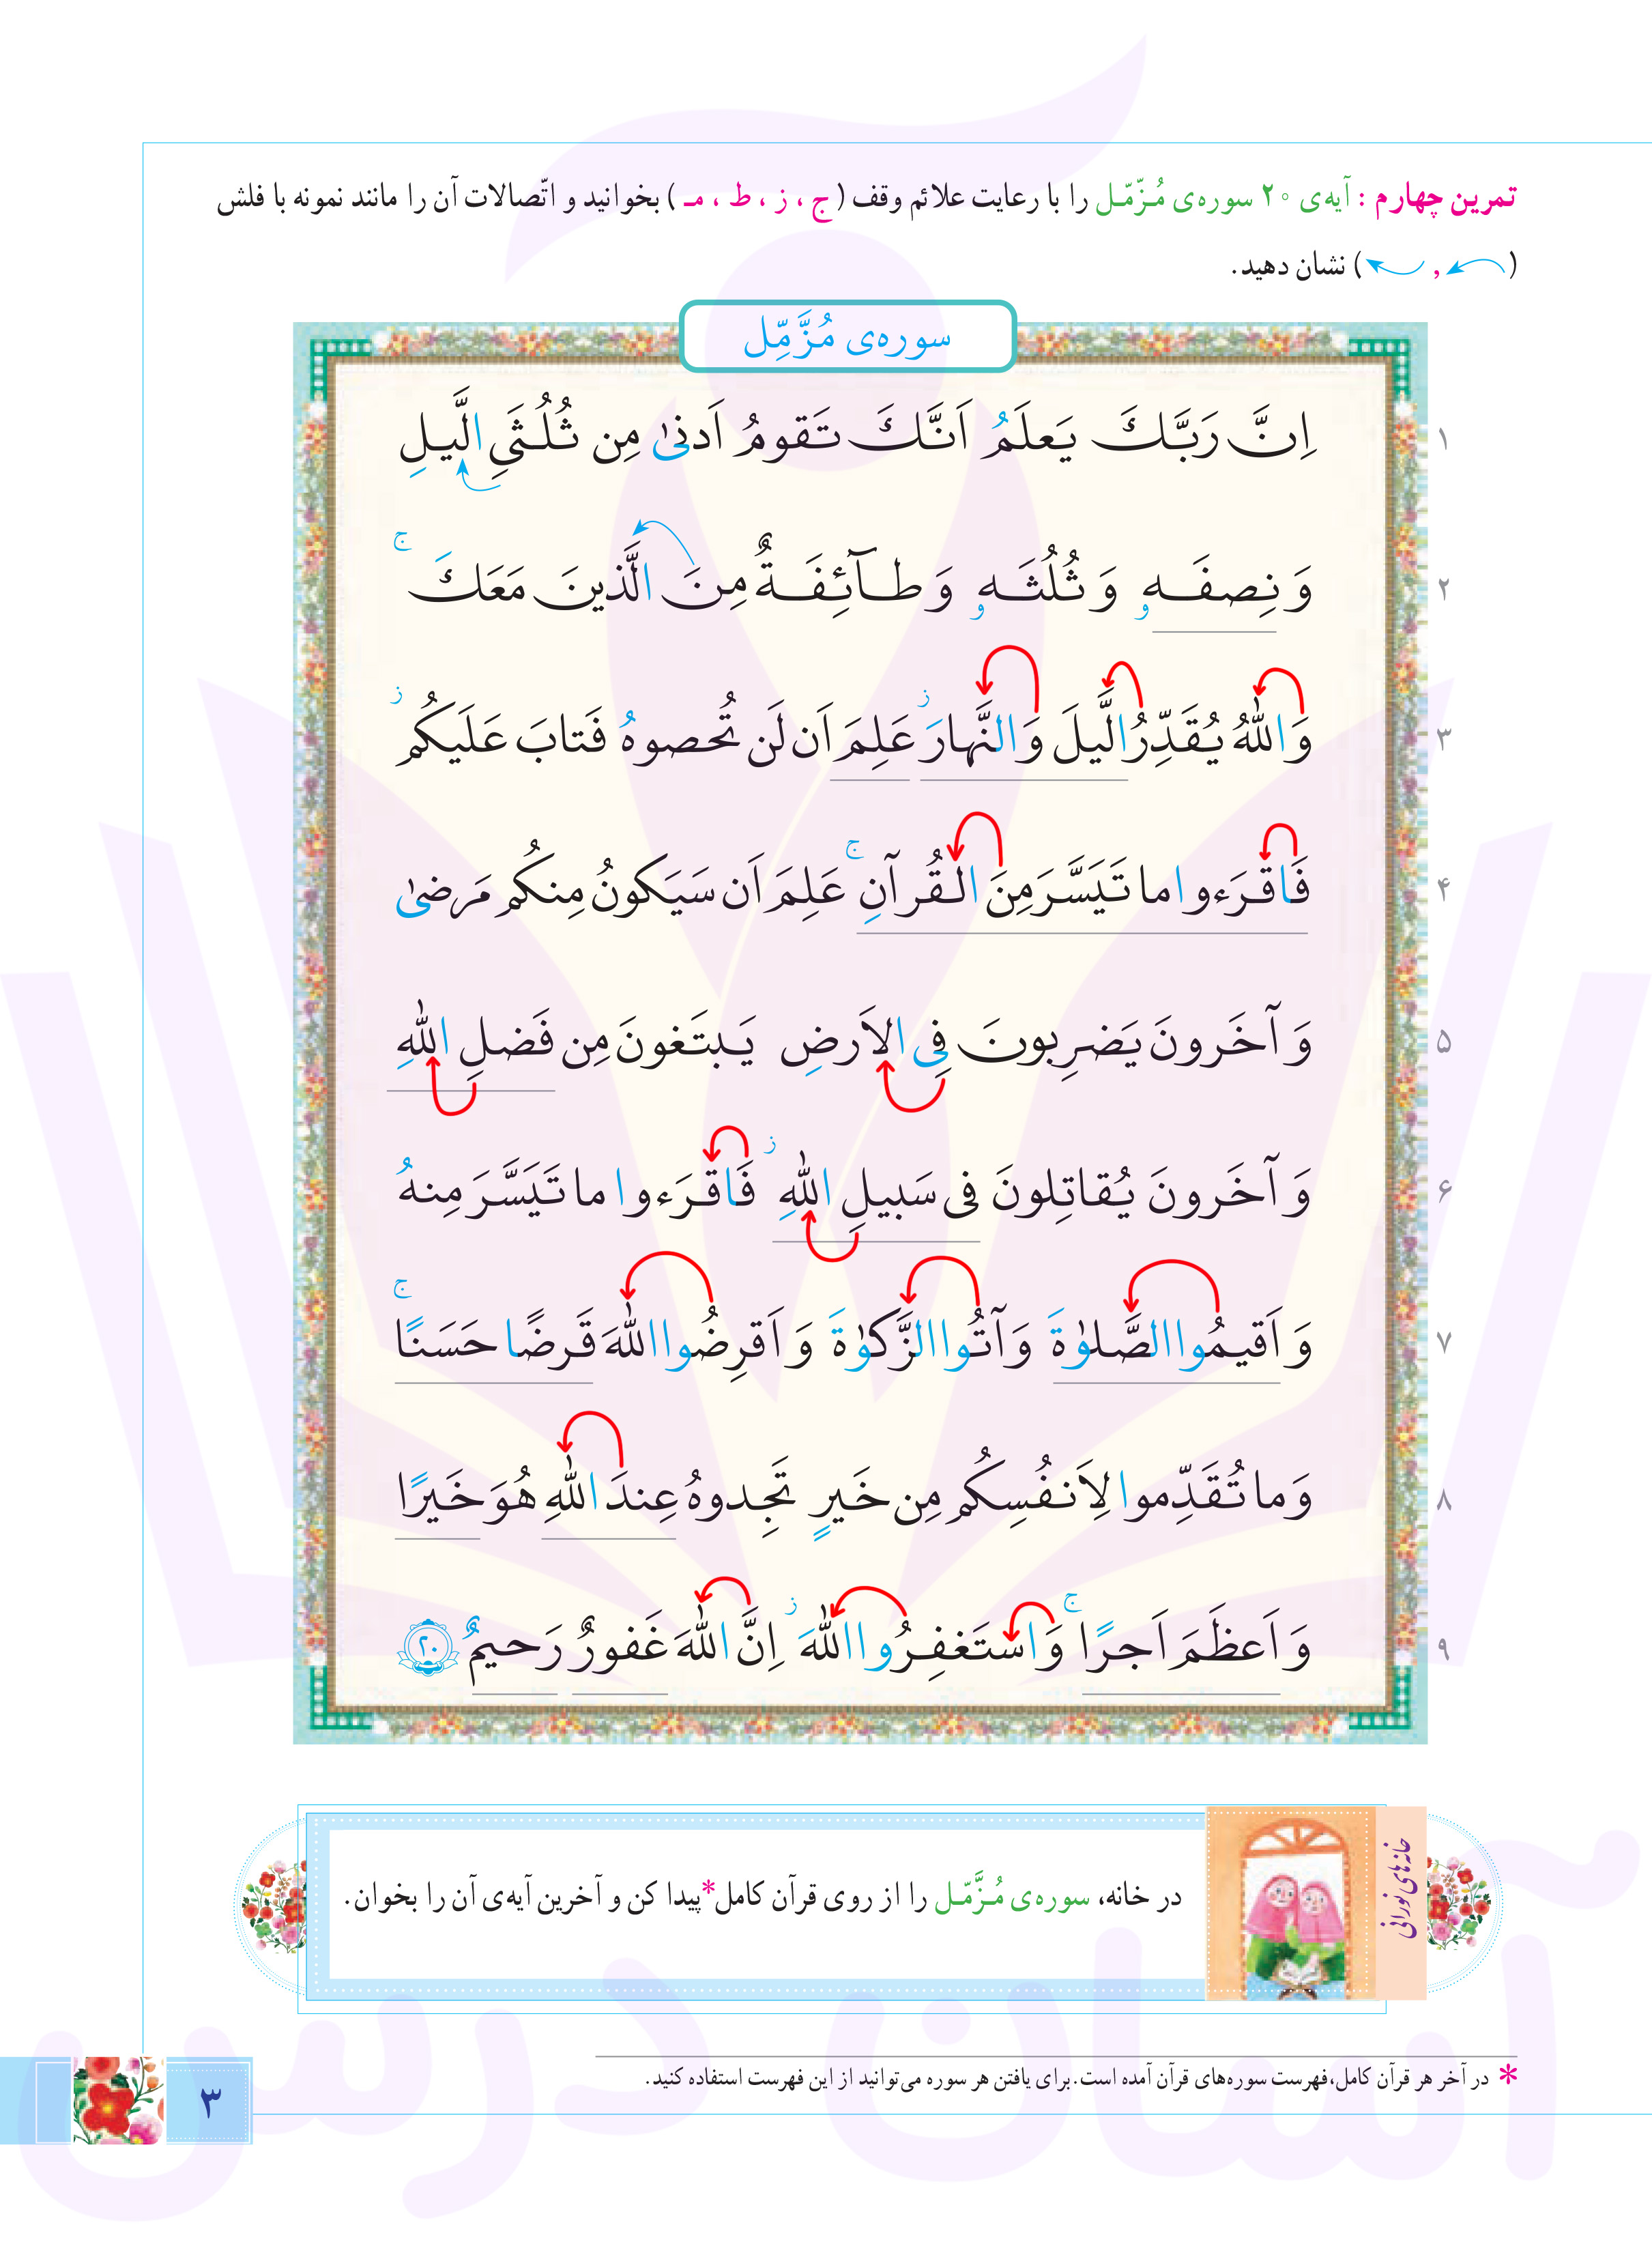 تمرین چهارم : آیه‌ی ۲۰ سوره‌ی مُـزّمّـل را با رعایت علائم وقف ( ج ، ز ، ط ، مـ ) بخوانید و اتّصالات آن را مانند نمونه با فلش
( , ) نشان دهید.
سوره‌ی مُزَّمِّل
۱ اِنَّ رَبَّكَ يَعلَمُ اَنَّكَ تَقومُ اَدنىٰ مِن ثُلُثَيِ الَّيلِ
۲ وَ نِصفَهو وَ ثُلُثَهو وَ طآئِفَةٌ مِنَ الَّذينَ مَعَكَ ۚ
۳ وَاللّٰهُ يُقَدِّرُ الَّيلَ وَالنَّهارَ ز عَلِمَ اَن لَن تُحصوهُ فَتابَ عَلَيكُم ز
۴ فَاقرَءوا ما تَيَسَّرَ مِنَ القُرآنِ ۚ عَلِمَ اَن سَيَكونُ مِنكُم مَرضىٰ
۵ وَ آخَرونَ يَضرِبونَ فِى الاَرضِ يَبتَغونَ مِن فَضلِ اللّٰهِ
۶ وَ آخَرونَ يُقاتِلونَ فى سَبيلِ اللّٰهِ ز فَاقرَءوا ما تَيَسَّرَ مِنهُ
۷ وَ اَقيمُوا الصَّلوٰةَ وَ آتُوا الزَّكوٰةَ وَ اَقرِضُوا اللّٰهَ قَرضًا حَسَنًا ۚ
۸ وَ ما تُقَدِّموا لِاَنفُسِكُم مِن خَيرٍ تَجِدوهُ عِندَ اللّٰهِ هُوَ خَيرًا
۹ وَ اَعظَمَ اَجرًا ۚ وَاستَغفِرُوا اللّٰهَ ز اِنَّ اللّٰهَ غَفورٌ رَحيمٌ ۲۰
خانه‌های نورانی
در خانه، سوره‌ی مُـزَّمّـل را از روی قرآن کامل* پیدا کن و آخرین آیه‌ی آن را بخوان.
* در آخر هر قرآن کامل، فهرست سوره‌های قرآن آمده است. برای یافتن هر سوره می‌توانید از این فهرست استفاده کنید.
آسان درس
۳